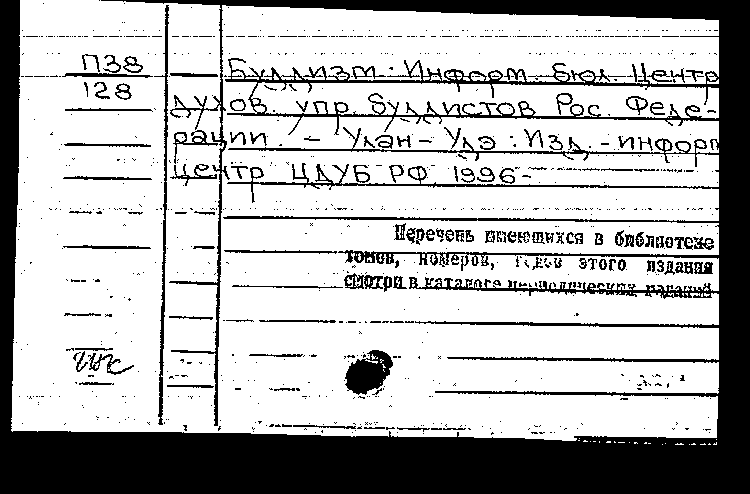 П38
128
Буддизм : Информ. бюл. Центр
духов. упр. буддистов Рос. Феде-
рации. - Улан-Удэ : Изд.-информ
центр ЦДУБ РФ 1996-
Перечень имеющихся в библиотеке
томов, номеров, годов этого издания
смотри в каталоге периодических изданий